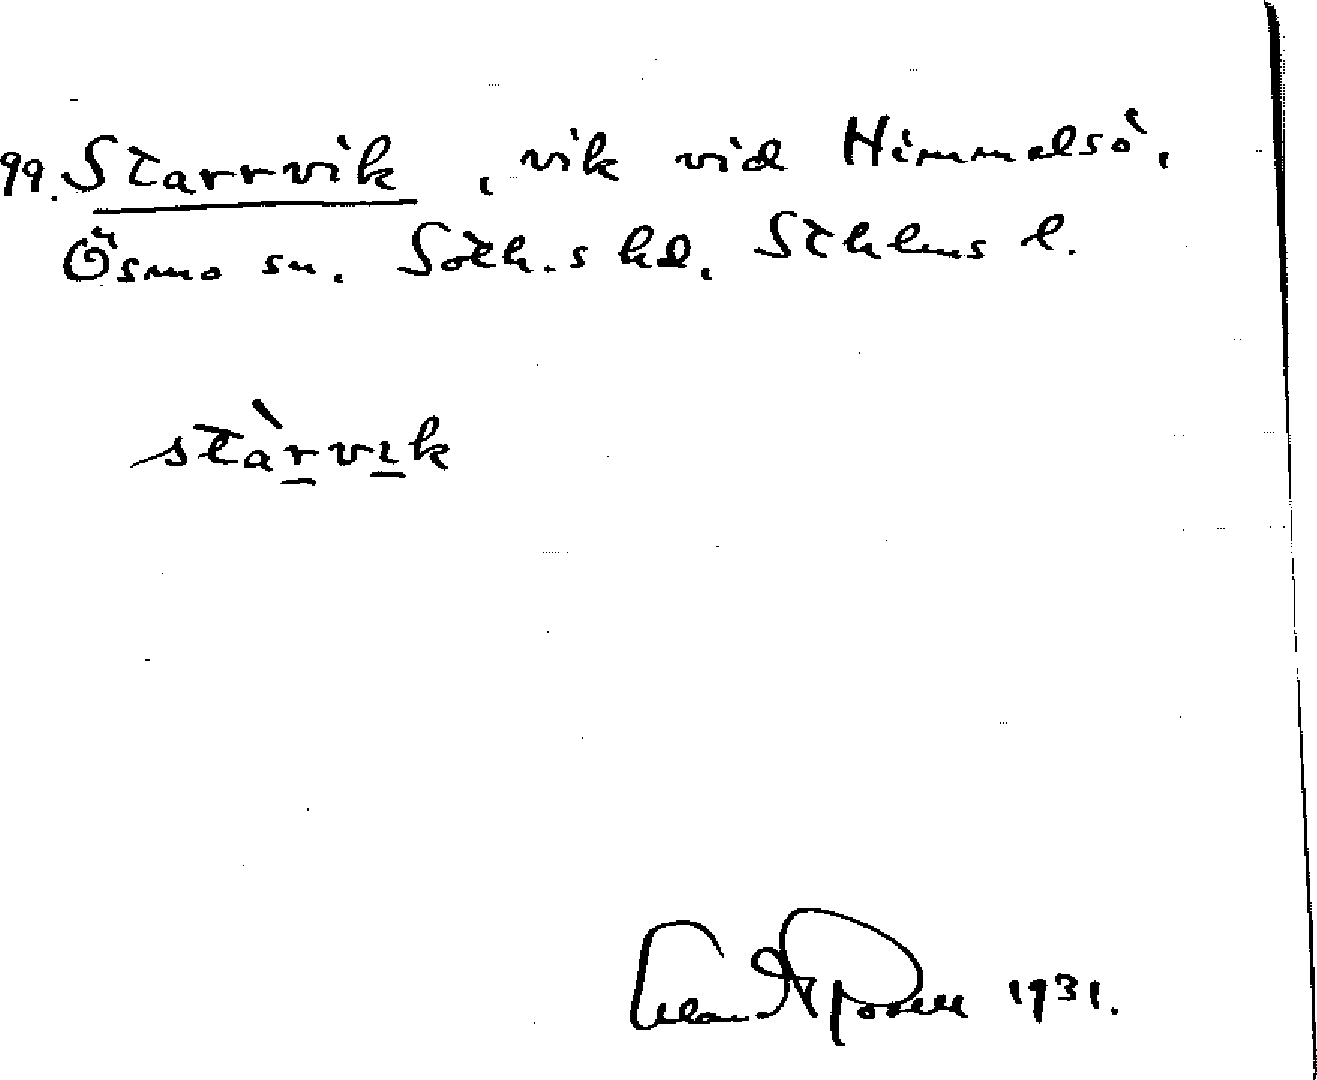 99. Starrvik, vik vid Himmelsö,
Ösmo sn. Soth.s hd. Sthlms l.
stàrvık
1931.